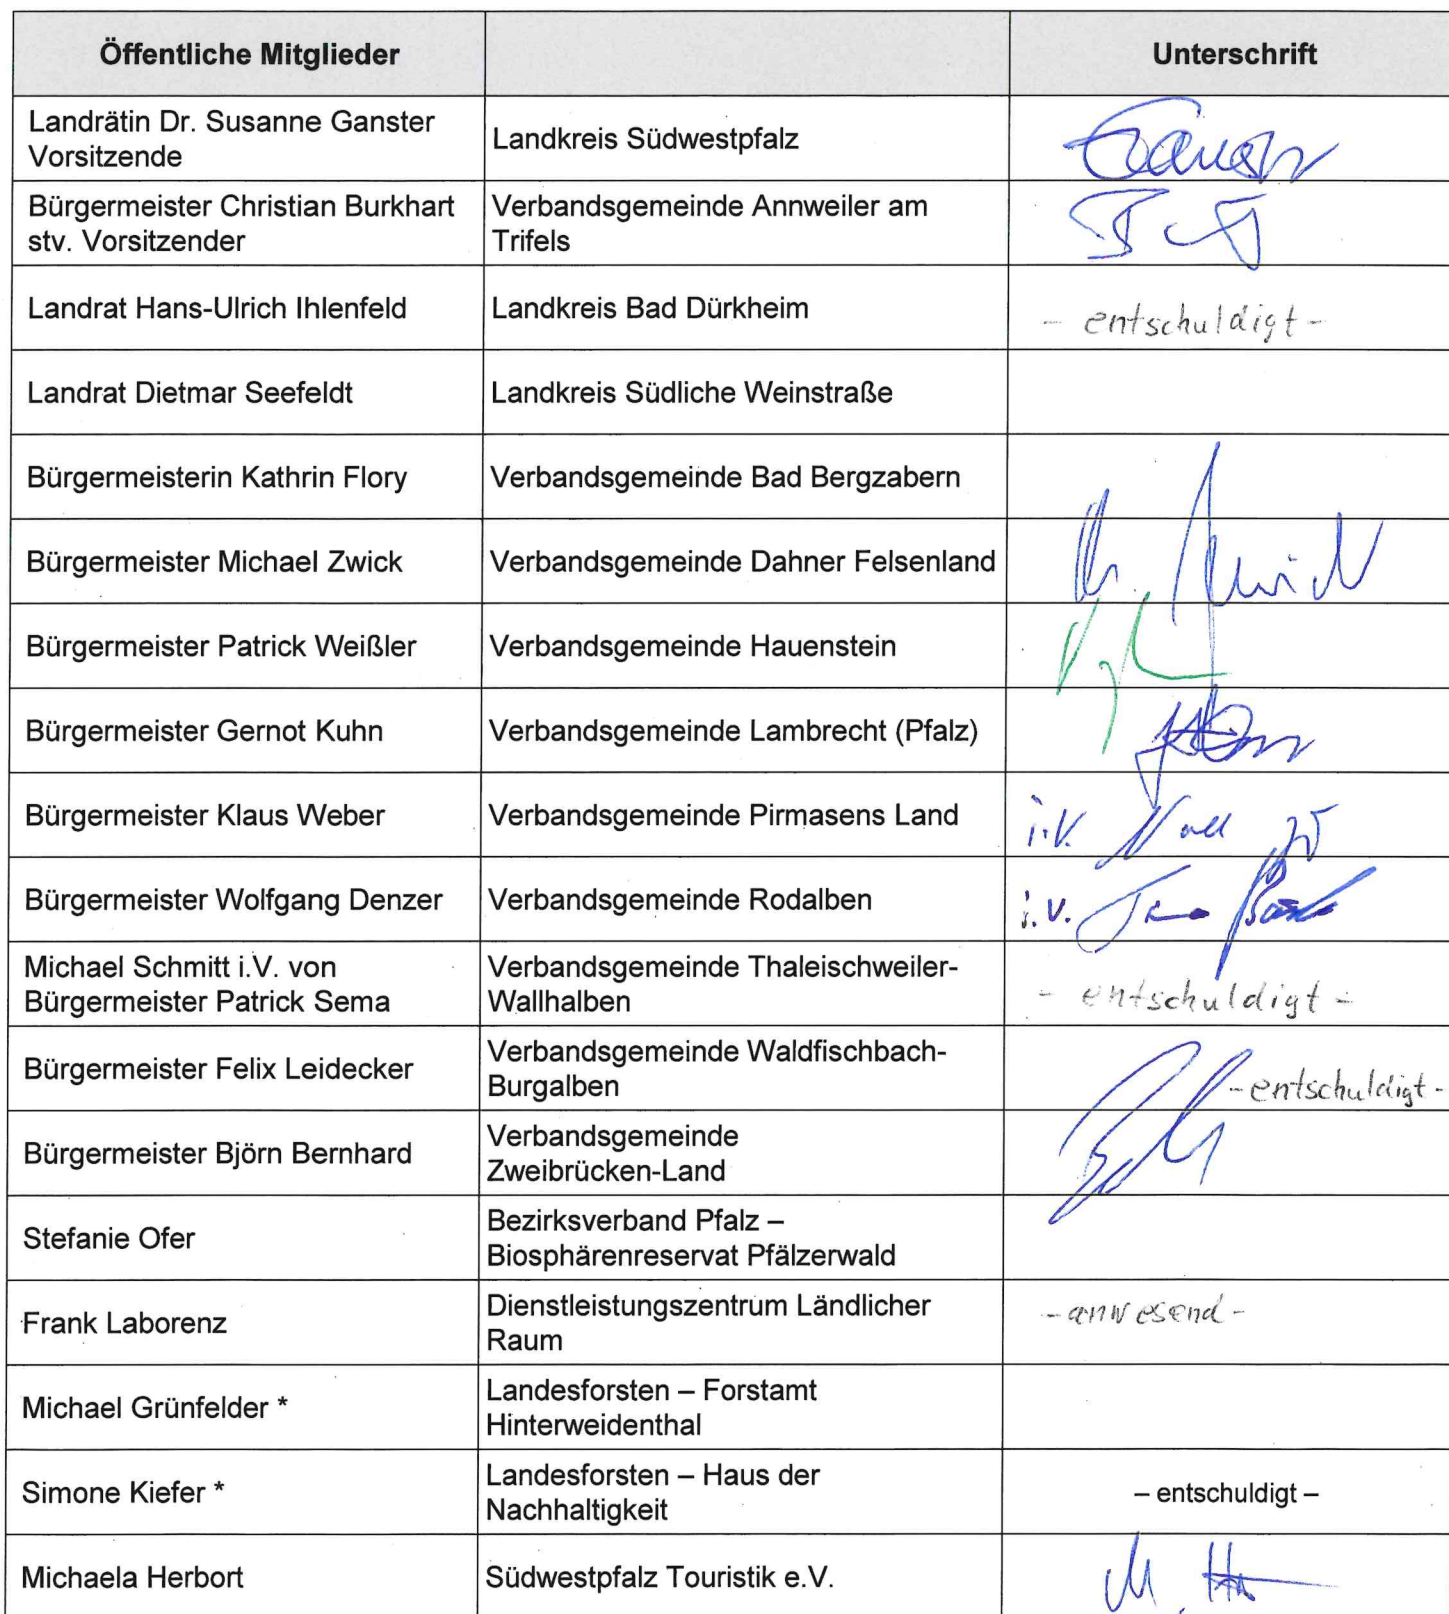 Öffentliche Mitglieder Unterschrift
Landrätin Dr. Susanne Ganster
Vorsitzende
Landkreis Südwestpfalz
Bürgermeister Christian Burkhart
stv. Vorsitzender
Verbandsgemeinde Annweiler am
Trifels
Landrat Hans-Ulrich Ihlenfeld
Landkreis Bad Dürkheim
- entschuldigt -
Landrat Dietmar Seefeldt
Landkreis Südliche Weinstraße
Bürgermeisterin Kathrin Flory
Verbandsgemeinde Bad Bergzabern
Bürgermeister Michael Zwick
Verbandsgemeinde Dahner Felsenland
Bürgermeister Patrick Weißler
Verbandsgemeinde Hauenstein
Bürgermeister Gernot Kuhn
Verbandsgemeinde Lambrecht (Pfalz)
Bürgermeister Klaus Weber
Verbandsgemeinde Pirmasens Land
i.V.
Bürgermeister Wolfgang Denzer
Verbandsgemeinde Rodalben
i.V.
Michael Schmitt i.V. von
Bürgermeister Patrick Sema
Verbandsgemeinde Thaleischweiler-
Wallhalben
- entschuldigt -
Bürgermeister Felix Leidecker
Verbandsgemeinde Waldfischbach-
Burgalben
- entschuldigt -
Bürgermeister Björn Bernhard
Verbandsgemeinde
Zweibrücken-Land
Stefanie Ofer
Bezirksverband Pfalz –
Biosphärenreservat Pfälzerwald
Frank Laborenz
Dienstleistungszentrum Ländlicher
Raum
- anwesend -
Michael Grünfelder *
Landesforsten – Forstamt
Hinterweidenthal
Simone Kiefer *
Landesforsten – Haus der
Nachhaltigkeit
– entschuldigt –
Michaela Herbort
Südwestpfalz Touristik e.V.